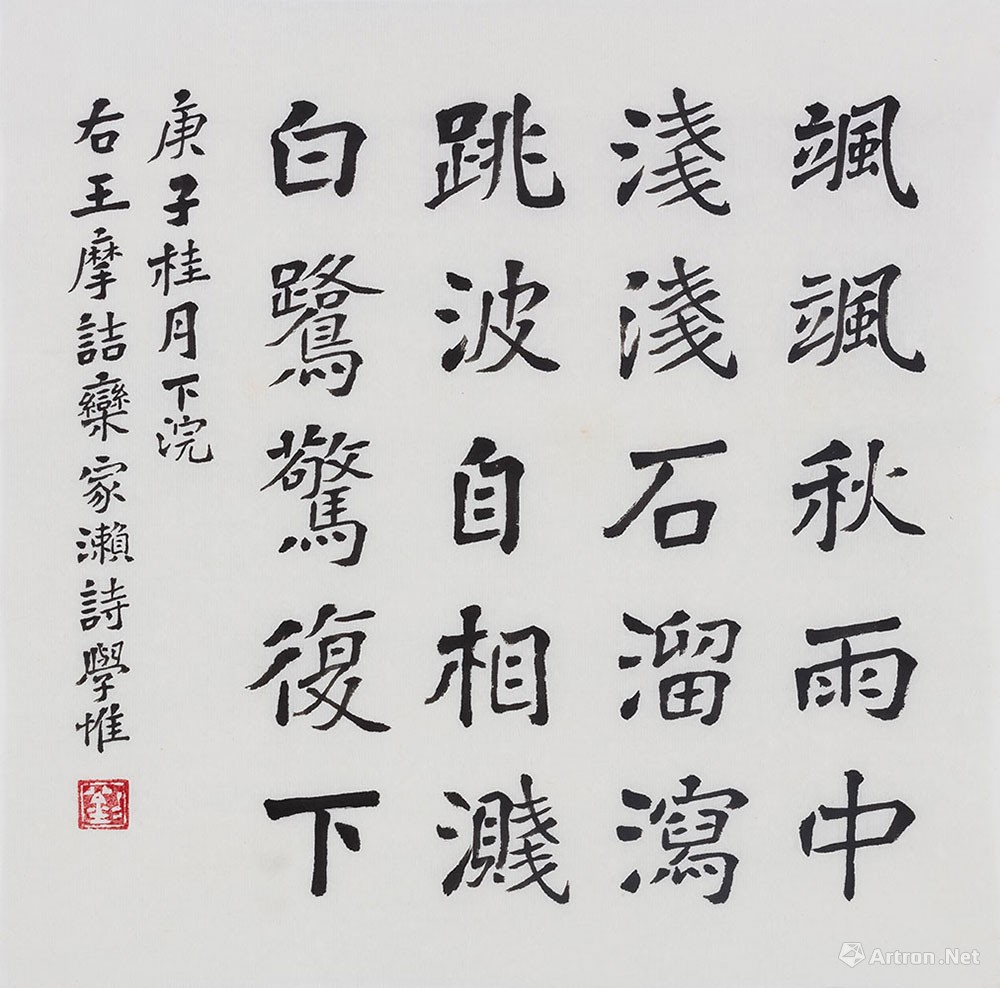 颯颯秋雨中
淺淺石溜瀉
跳波自相濺
白鷺驚復下
庚子桂月下浣
右王摩詰欒家瀨詩學惟
Artron.Net